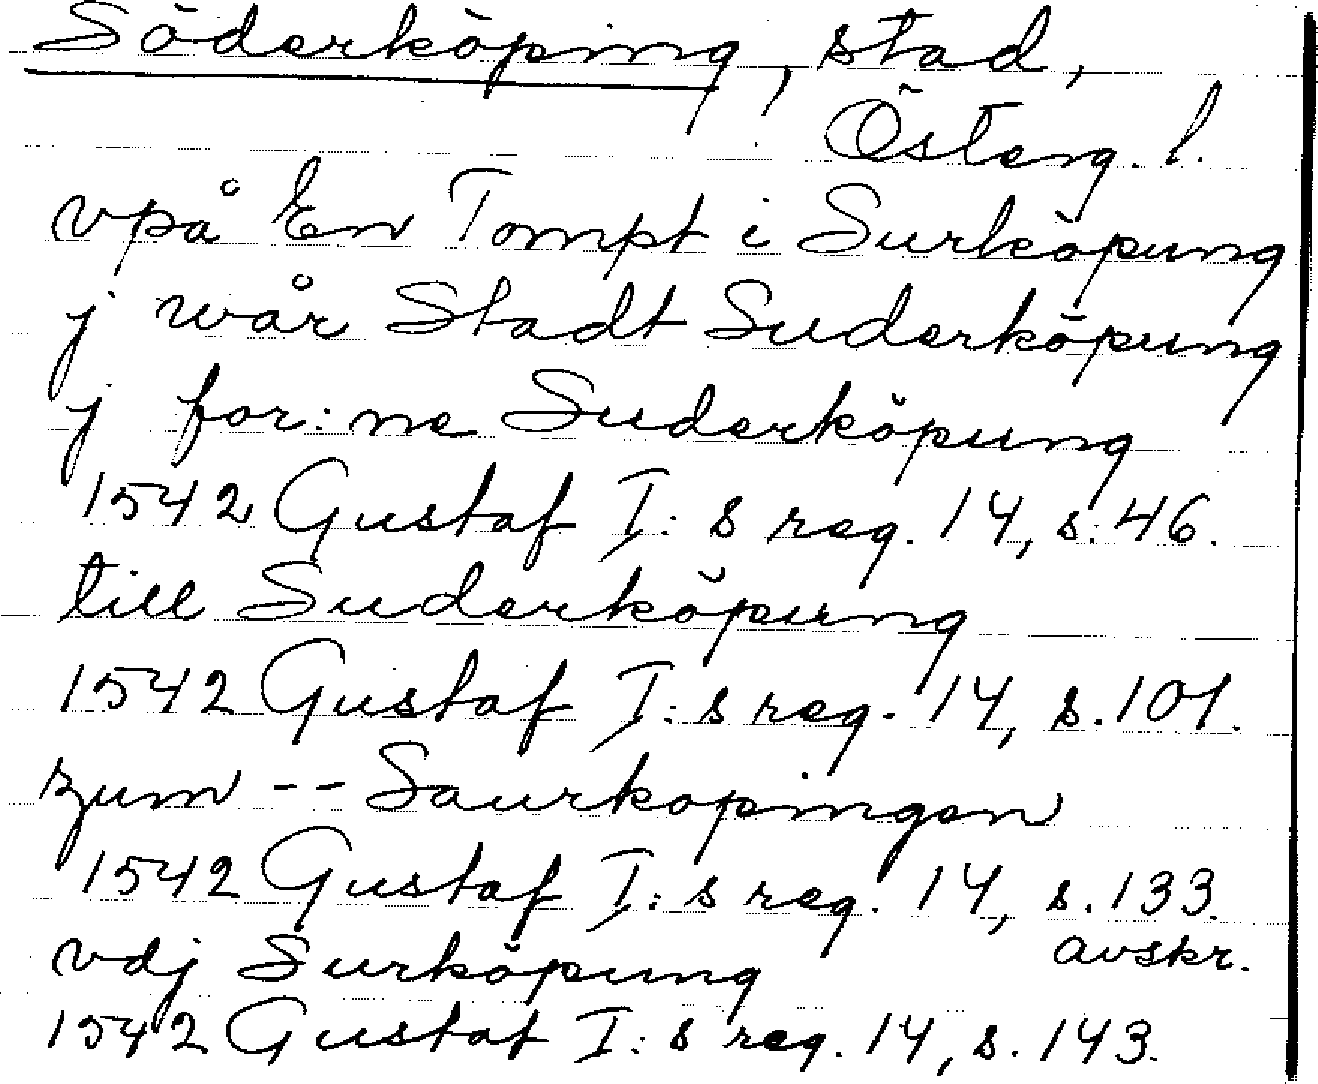 Söderköping, stad,
Österg. l.
vpå En Tompt i Surköpung
j wår Stadt Suderköpung
j for: ne Suderköpung
1542 Gustaf I: s reg. 14, s. 46.
till Suderköpung
1542 Gustaf I: s reg. 14, s. 101.
zum -- Saurkopingen
1542 Gustaf I: s reg. 14, s. 133.
avskr.
vdj Surköpung
1542 Gustaf I: s reg. 14, s. 143.